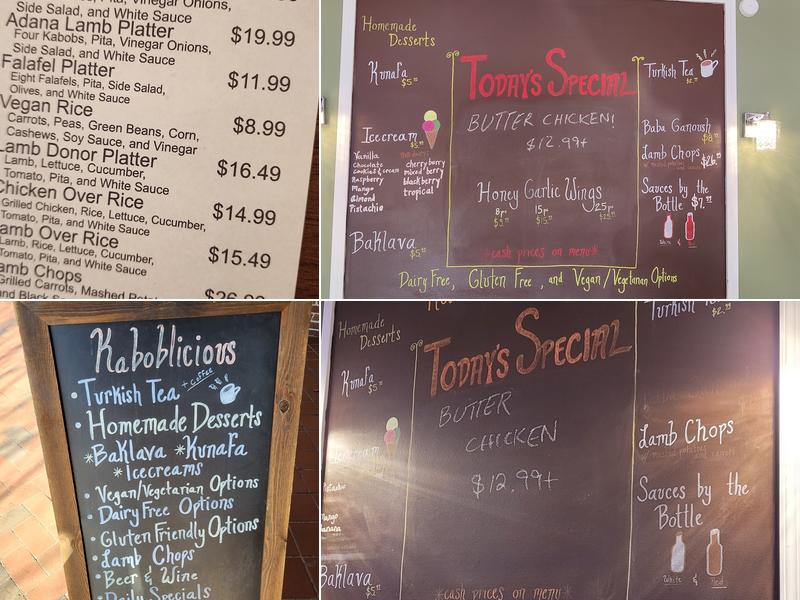 Side Salad, and White Sauce
Adana Lamb Platter $19.99
Four Kabobs, Pita, Vinegar Onions,
Side Salad, and White Sauce
Falafel Platter $11.99
Eight Falafels, Pita, Side Salad,
Olives, and White Sauce
Vegan Rice $8.99
Carrots, Peas, Green Beans, Corn,
Cashews, Soy Sauce, and Vinegar
Lamb Donor Platter $16.49
Lamb, Lettuce, Cucumber,
Tomato, Pita, and White Sauce
Chicken Over Rice $14.99
Grilled Chicken, Rice, Lettuce, Cucumber,
Tomato, Pita, and White Sauce
amb Over Rice $15.49
Lamb, Rice, Lettuce, Cucumber,
Tomato, Pita, and White Sauce
amb Chops
Grilled Carrots, Mashed
Homemade
Desserts
Kunafa
$5
Icecream
Vanilla
Chocolate
cookies & cream
Raspberry
Mango
Almond
Pistachio
cherry berry
mixed berry
black berry
tropical
Baklava
$5
TODAY'S SPECIAL
BUTTER CHICKEN!
$12.99+
Honey Garlic Wings
8pc 15pc 25pc
*cash prices on menu*
Turkish Tea
Baba Ganoush
Lamb Chops
Sauces by the
Bottle $7.99
White & Red
Dairy Free, Gluten Free, and Vegan/Vegetarian Options
Kaboblicious
• Turkish Tea + Coffee
• Homemade Desserts
*Baklava *Kunafa
*Icecreams
• Vegan/Vegetarian Options
• Dairy Free Options
• Gluten Friendly Options
• Lamb Chops
• Beer & Wine
• Daily Specials
Homemade
Desserts
Kunafa
$5
Icecream
Pistachio
Mango
Baklava
$5
TODAY'S SPECIAL
BUTTER
CHICKEN
$12.99+
*cash prices on menu*
Turkish
Lamb Chops
Sauces by the
Bottle
White & Red